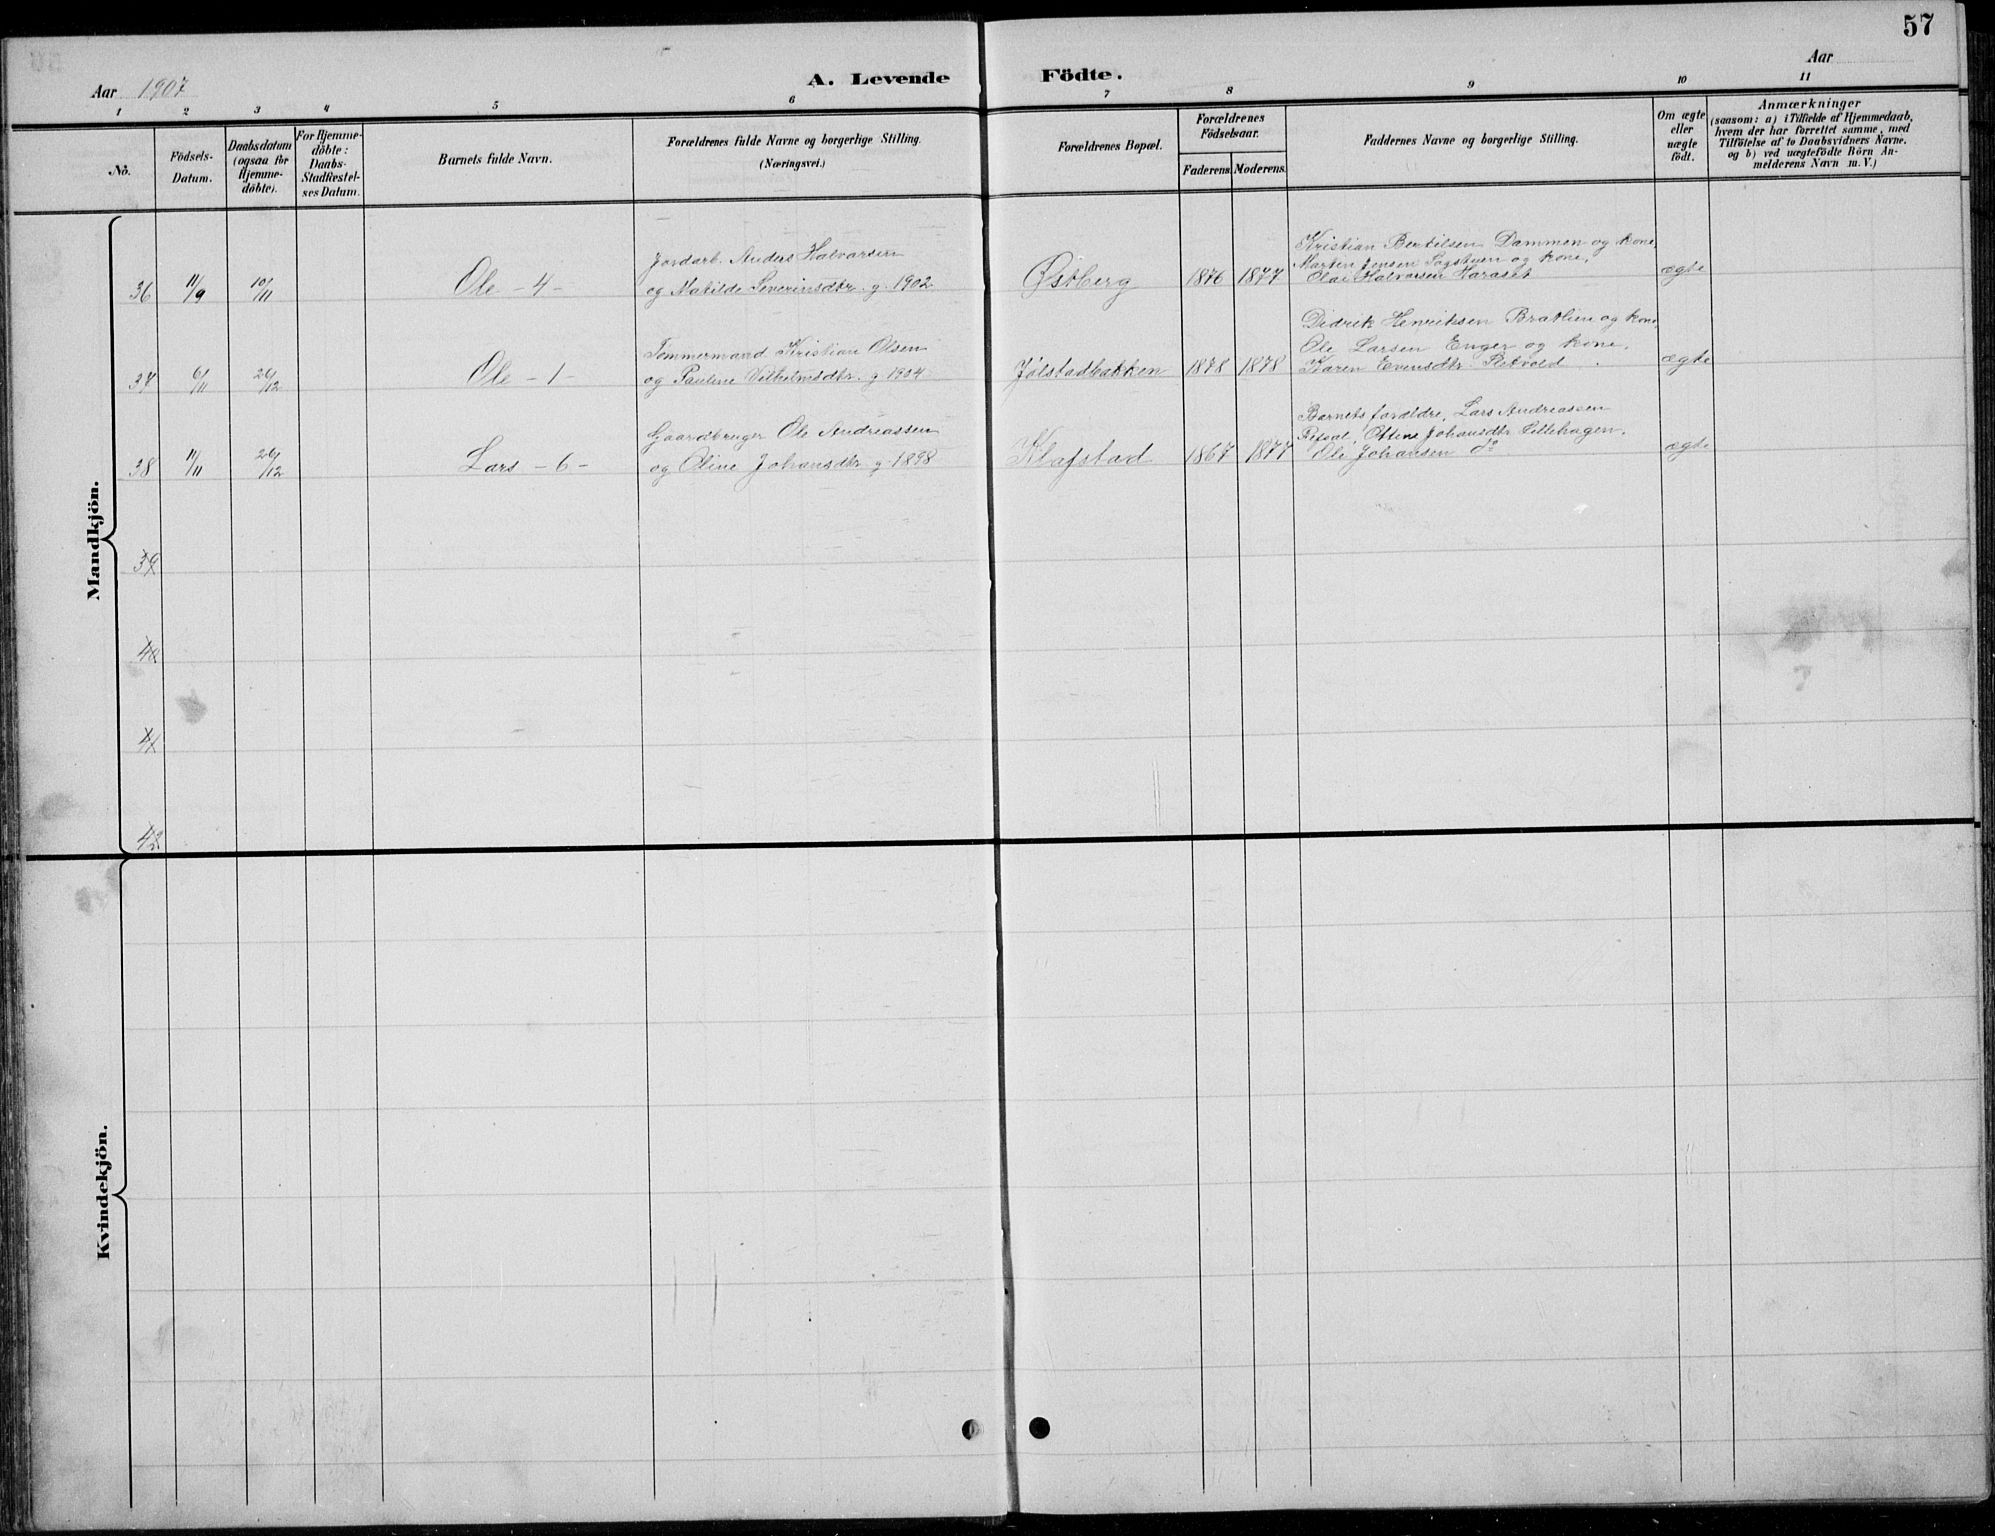 57
Aar 1907
A. Levende Födte.
Aar
1 2 3 4 5 6 7 8 9 10 11
No.
Födsels-
Datum.
Daabsdatum
(ogsaa for
Hjemme-
döbte).
For Hjemme-
döbte:
Daabs-
Stadfestel-
ses Datum.
Barnets fulde Navn.
Forældrenes fulde Navne og borgerlige Stilling.
(Næringsvei.)
Forældrenes Bopæl.
Forældrenes
Födselsaar.
Faderens. Moderens.
Faddernes Navne og borgerlige Stilling.
Om ægte
eller
uægte
födt.
Anmærkninger
(saasom: a) i Tilfælde af Hjemmedaab,
hvem der har forrettet samme, med
Tilföielse af to Daabsvidners Navne,
og b) ved uægtefödte Börn An-
melderens Navn m. V.)
Mandkjön.
36 11/9 10/11 Ole - 4 -
Jordarb. Anders Halvorsen
og Matilde Severinsdtr. g. 1902
Østberg 1876 1877
Kristian Bertilsen Dammen og kone,
Martin Jensen Sagstuen og kone,
Olai Halvorsen Haraset
ægte
37 6/11 26/12 Ole - 1 -
Tømmermand Kristian Olsen
og Pauline Vilhelmsdtr. g. 1904
Jølstadbakken 1878 1878
Didrik Henriksen Bratlien og kone,
Ole Larsen Enger og kone,
Karen Evensdtr.
ægte
38 11/11 26/12 Lars - 6 -
Gaardbruger Ole Andreassen
og Oline Johansdtr. g. 1898
Klafstad 1867 1877
Barnets forældre, Lars Andreassen
Ottine Johansdtr. Lillehagen,
Ole Johansen do
ægte
39
40
41
42
Kvindekjön.